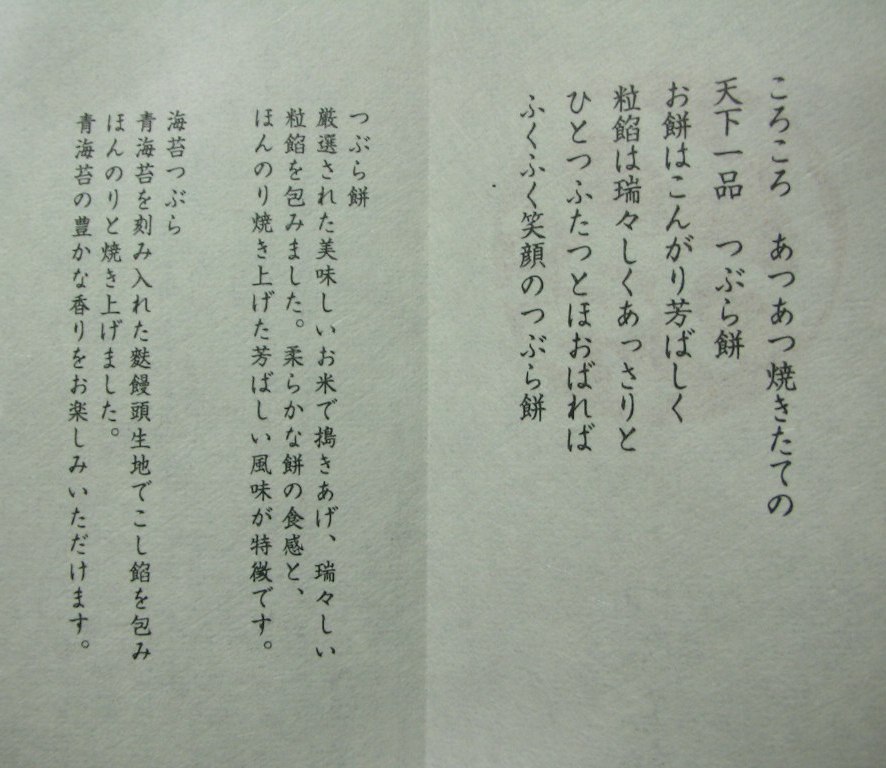 ころころ　あつあつ焼きたての
天下一品　つぶら餅
お餅はこんがり芳ばしく
粒餡は瑞々しくあっさりと
ひとつふたつとほおばれば
ふくふく笑顔のつぶら餅
つぶら餅
厳選された美味しいお米で搗きあげ、瑞々しい
粒餡を包みました。柔らかな餅の食感と、
ほんのり焼き上げた芳ばしい風味が特徴です。
海苔つぶら
青海苔を刻み入れた麩饅頭生地でこし餡を包み
ほんのりと焼き上げました。
青海苔の豊かな香りをお楽しみいただけます。